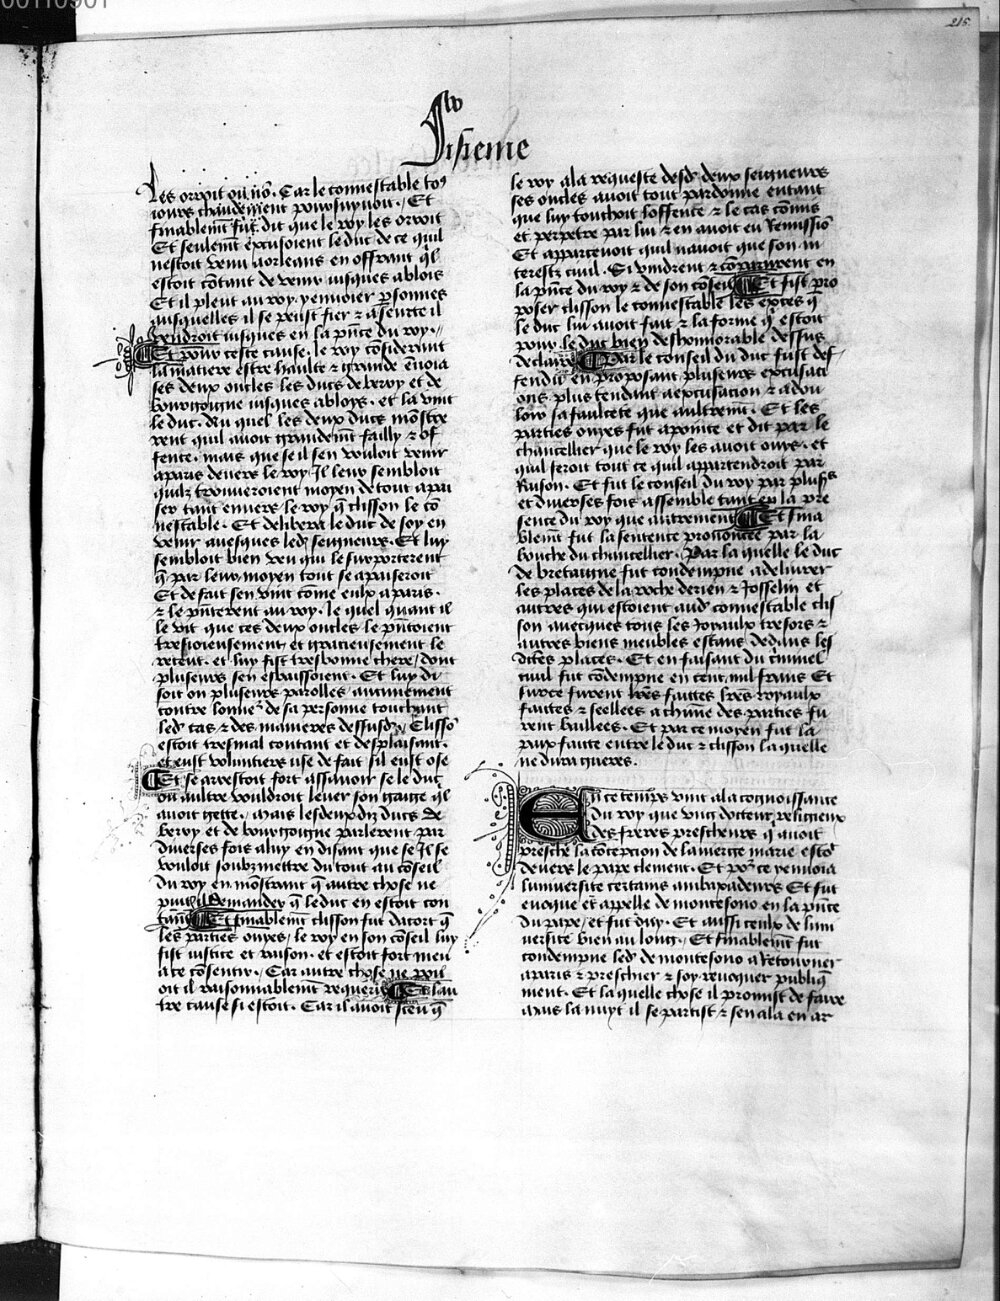 215
Sisieme
les orroit ou no͂. Car le connestable tos
iours chaudement poursuyuoit. Et
finablemt̄ fut dit que le roy les orroit
Et seulemt̄ excusoient le duc de ce quil
nestoit venu aorleans en offrant ql̄
estoit cōtant de venir iusques a blois
Et il pleut au roy. y enuoier psonnes
ausquelles il se peust fier z asseurte il
vendroit iusques en la pn̄ce du roy.
Et pour ceste cause. le roy cōsiderant
la matiere estre haulte z grande enuoia
ses deux oncles les ducs de berry et de
bourgoigne iusques abloys. et la vint
le duc. Au quel les deux ducs mōstre
rent quil auoit grandemt̄ failly z of
fence. mais que se il sen vouloit venir
aparis deuers le roy Il leur sembloit
quilz trouueroient moyen de tout apai
ser tant enuers le roy q̄ clisson le cō
nestable. Et delibera le duc de soy en
venir auesques led seigneurs. Et luy
sembloit bien veu qui le supporterent
q̄ par leur moyen tout se apaiseroit
Et de fait sen vint cōme eulx a paris.
z le pn̄terent au roy. le quel quant il
le vit que ces deux oncles le pn̄toient
tresioieusement et gracieusement le
receut. et luy fist tresbonne chere. dont
plusieurs sen esbaissoient. Et luy di
soit on plusieurs parolles aucunement
contre lonneʳ de sa personne touchant
led cas z des manieres dessusd Clisso͂
estoit tresmal contant et desplaisant.
et eust voluntiers vse de fait sil eust ose
Et se arrestoit fort assauoir se le duc
ou aultre vouldroit leuer son gaige ql̄
auoit gette. mais lesdeux diz ducs de
berry et de bourgoigne parlerent par
diuerses fois aluy en disant que se Il se
vouloit soubzmettre du tout au cōseil
du roy en mōstrant q̄ autre chose ne
pouuoit demander q̄ le duc en estoit con
tant Et finablemt̄ clisson fut dacort q̄
les parties ouyes. le roy en son cōseil luy
fist iustice et raison. et estoit fort meu
a ce cōsentir. Car autre chose ne pou
oit il raisonnablemt̄ requerir Et lau
tre cause si estoit. Car il auoit sceu q̄
le roy ala requeste desd deux seigneurs
ses oncles auoit tout pardonne entant
que luy touchoit loffence z le cas cōmis
et perpetre par lui z en auoit eu Remissiō
Et appartenoit quil nauoit que son in
terestz ciuil. Si vindrent z cōparurent en
la pn̄ce du roy z de son cōseil Et fist pro
poser clisson le connestable les exces q̄
le duc lui auoit fait z la forme q̄ estoit
pour le duc bien deshonnorable dessus
declairee Par le conseil du duc fust def
fendu en proposant plusieurs excusaci
ons. plus tendant a excusacion z a dou
loir sa faulcete que aultremt̄. Et les
parties ouyes fut apointe et dit par le
chancellier que le roy les auoit ouys. et
quil feroit tout ce quil appartendroit par
Raison. Et fut le conseil du roy par plusrs
et diuerses fois assemble tant en la pre
sence du roy que autrement Et fina
blemt̄ fut la sentence prononcee par la
bouche du chancellier. Par la quelle le duc
de bretaigne fut condempne a deliurer
les places de la roche derien z Josselin et
autres qui estoient aud connestable clis
son auecques tous les Joyaulx tresors z
autres biens meubles estans dedans les
dites places. Et en faisant du criminel
ciuil fut cōdempne en cent mil frans Et
sur ce furent lr̄es faittes lr̄es royaulx
faittes z seellees a chūne des parties fu
rent baillees. Et par ce moyen fut la
paix faitte entre le duc z clisson la quelle
ne dura gueres.
En ce temps vint ala cognoissance
du roy que vng docteur religieux
des freres prescheurs q̄ auoit
presche la cōcepcion de la vierge marie estoit
deuers le pape clement. Et poʳ ce y enuoia
luniuersite certains ambaxadeurs Et fut
euoque et appelle de montesono en la pn̄ce
du pape, et fut duy. Et aussi ceulx de luni
uersite bien au long. Et finablemt̄ fut
condempne led de montesono a Retourner
aparis z preschier z soy reuoquer publiq̄
ment. Et la quelle chose il promist de faire
mais la nuyt il se partist z sen ala en ar